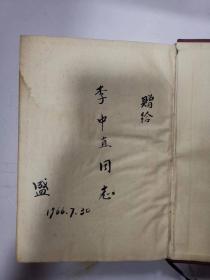 赠给
李中直同志
盛
1966.7.30